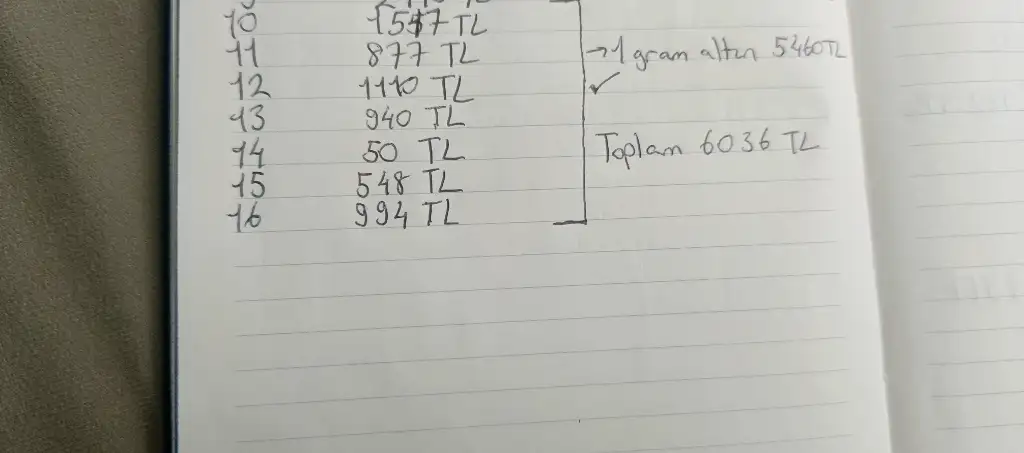 10 1517 TL
11 877 TL → 1 gram altın 5460TL
12 1110 TL ✓
13 940 TL
14 50 TL Toplam 6036 TL
15 548 TL
16 994 TL